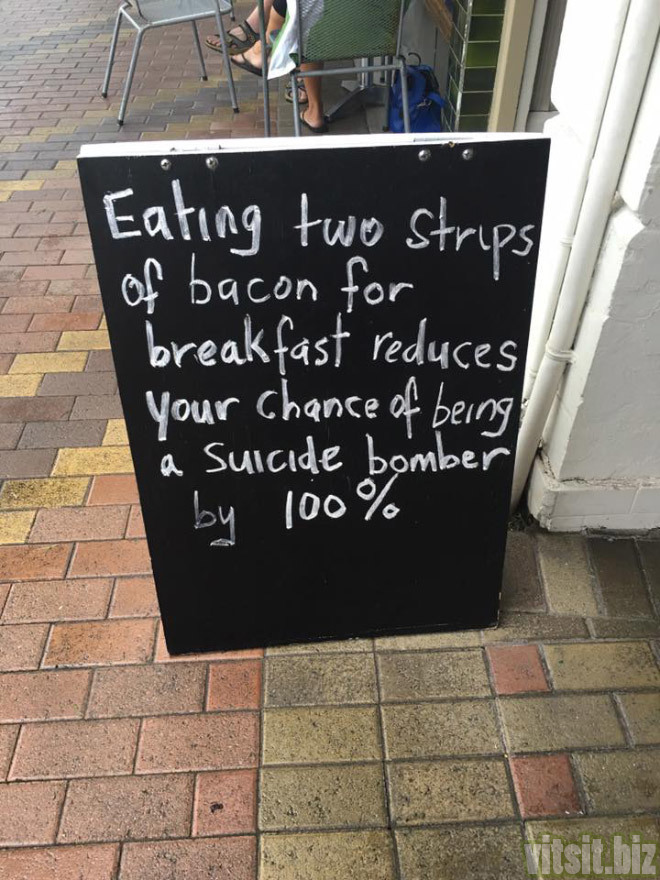 Eating two strips
of bacon for
breakfast reduces
your chance of being
a suicide bomber
by 100%
vitsit.biz